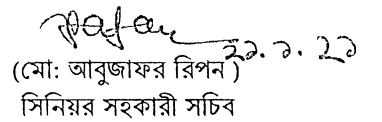 ২১.১.২১
(মো: আবুজাফর রিপন )
সিনিয়র সহকারী সচিব